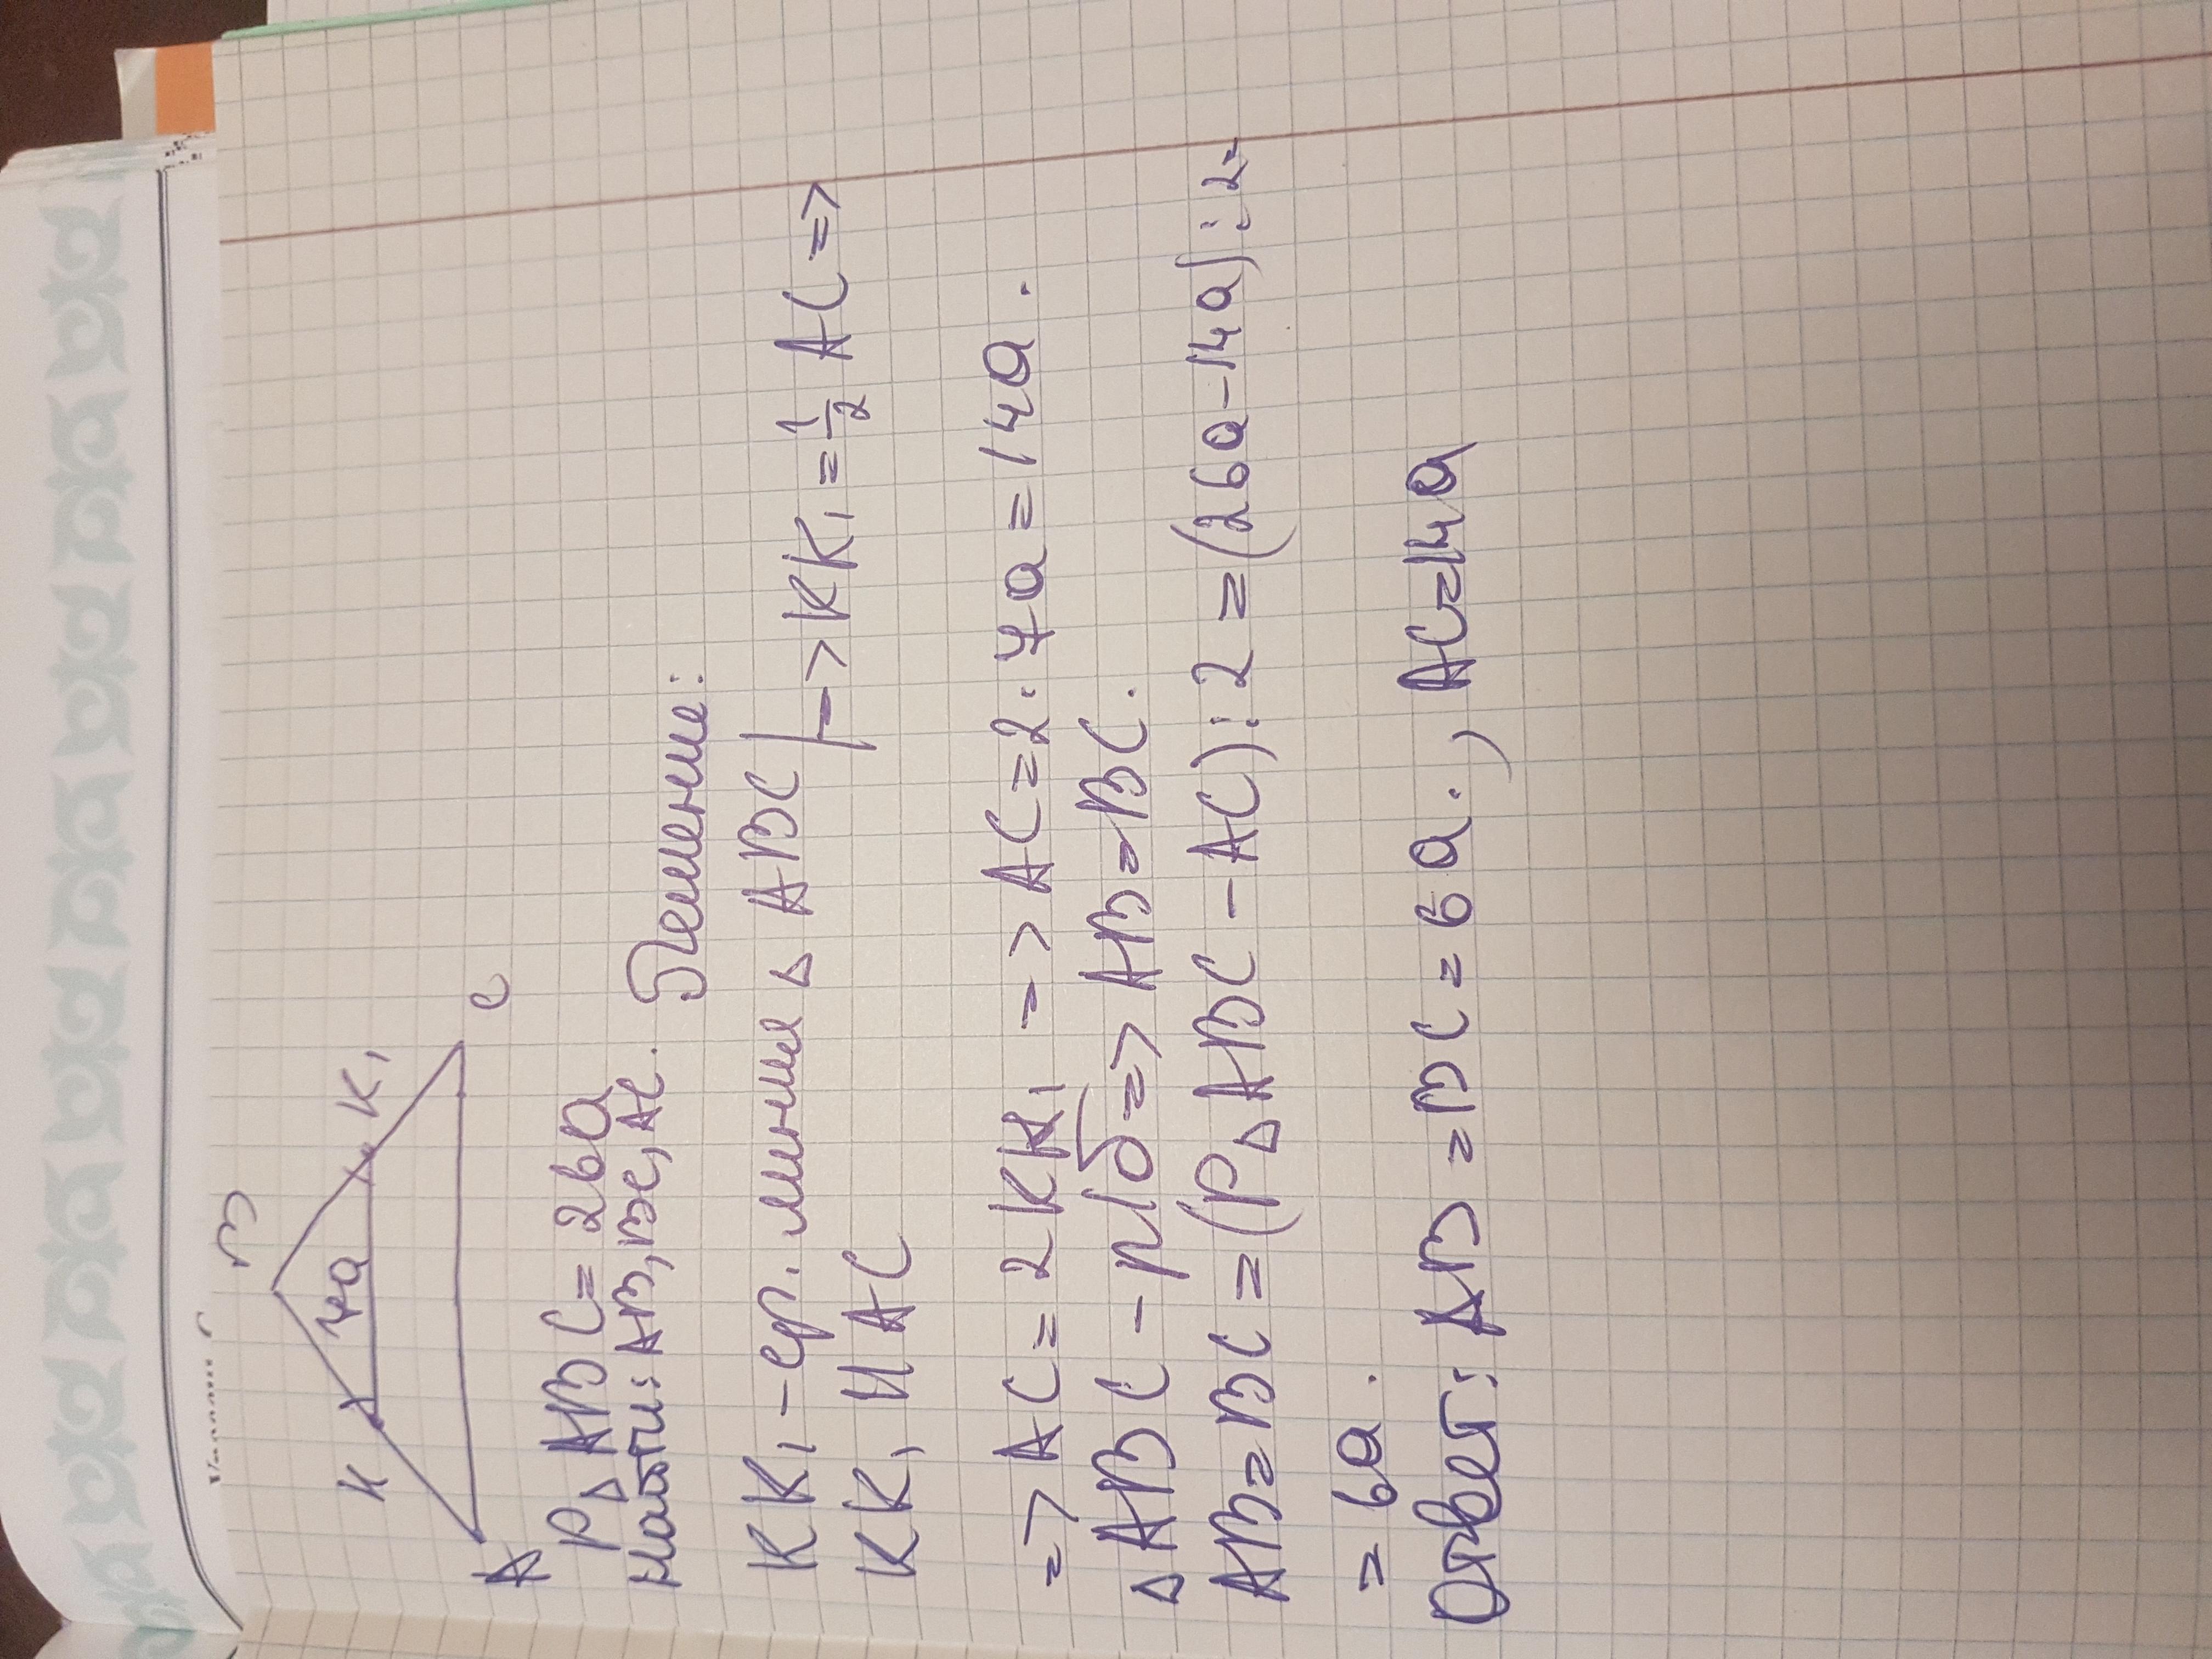 B
K K₁
7a
A C
P△ABC=26a
Найти: AB, BC, AC. Решение:
KK₁ - ср. линия △ ABC |=> KK₁ = 1/2 AC =>
KK₁ || AC
=> AC = 2KK₁ => AC = 2·7a = 14a.
△ABC - р/б => AB=BC.
AB=BC=(P△ABC-AC):2=(26a-14a):2=
=6a.
Ответ: AB=BC=6a., AC=14a